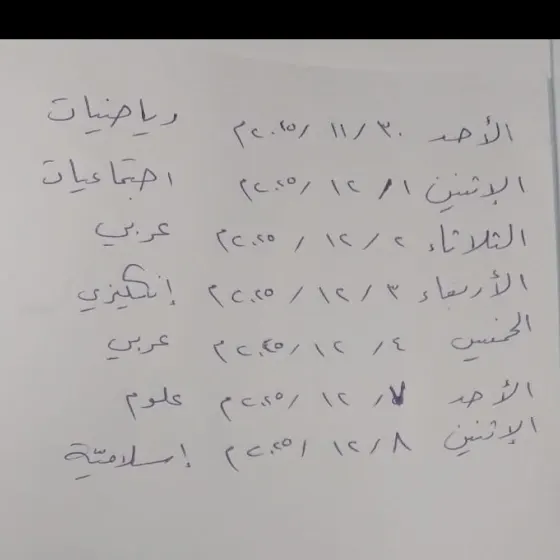 الأحد ٣٠/ ١١ /٢٠٢٥م رياضيات
الإثنين ١/ ١٢ /٢٠٢٥م اجتماعيات
الثلاثاء ٢/ ١٢ /٢٠٢٥م عربي
الأربعاء ٣/ ١٢ /٢٠٢٥م إنكليزي
الخميس ٤/ ١٢ /٢٠٢٥م عربي
الأحد ٧/ ١٢ /٢٠٢٥م علوم
الإثنين ٨/ ١٢ /٢٠٢٥م إسلاميّة